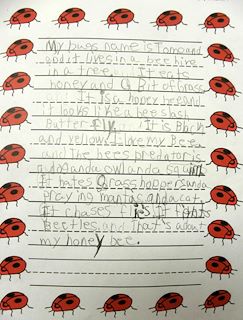 My bugs name is Tomo and
and it lives in a bee hive
in a tree. It eats
honey and a bit of grass
It is a hopper bee and
it looks like a bee slash
butterfly. It is Black
and yellow I love my Bee.
and The bees predator is
and a owl and a squid
It hates Grasshoppers and a
Praying mantis and a cat
It chases flies. It fights
Beetles, and That's about
my honey bee.